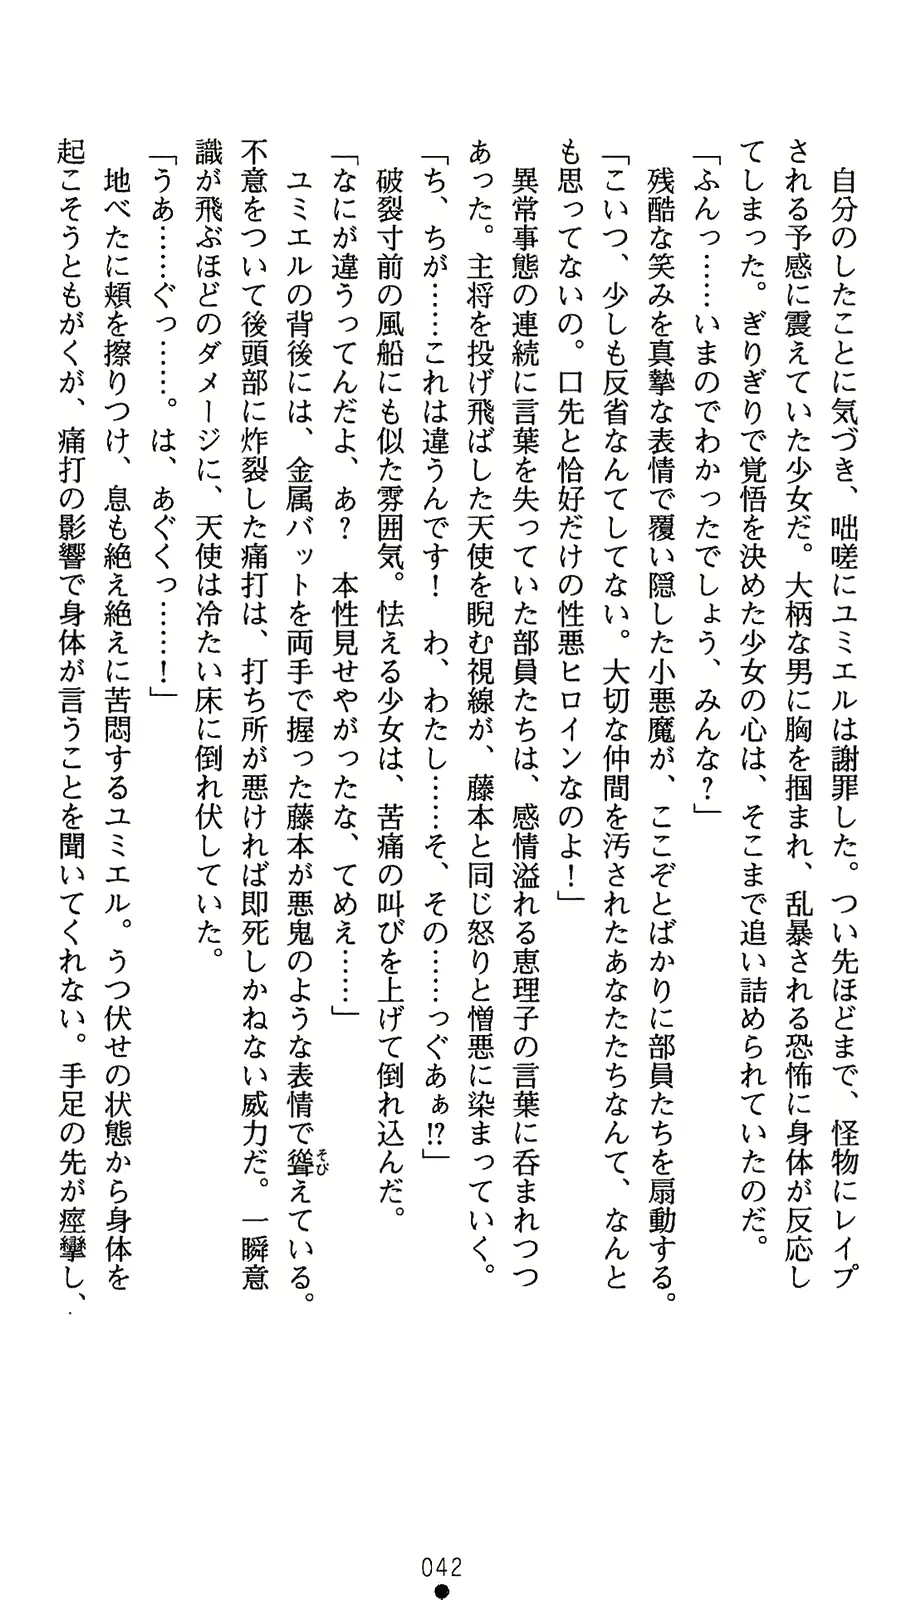 自分のしたことに気づき、咄嗟にユミエルは謝罪した。つい先ほどまで、怪物にレイプ
される予感に震えていた少女だ。大柄な男に胸を掴まれ、乱暴される恐怖に身体が反応し
てしまった。ぎりぎりで覚悟を決めた少女の心は、そこまで追い詰められていたのだ。
「ふんっ……いまのでわかったでしょう、みんな？」
残酷な笑みを真摯な表情で覆い隠した小悪魔が、ここぞとばかりに部員たちを扇動する。
「こいつ、少しも反省なんてしてない。大切な仲間を汚されたあなたたちなんて、なんと
も思ってないの。口先と恰好だけの性悪ヒロインなのよ！」
異常事態の連続に言葉を失っていた部員たちは、感情溢れる恵理子の言葉に呑まれつつ
あった。主将を投げ飛ばした天使を睨む視線が、藤本と同じ怒りと憎悪に染まっていく。
「ち、ちが……これは違うんです！　わ、わたし……そ、その……っぐあぁ!?」
破裂寸前の風船にも似た雰囲気。怯える少女は、苦痛の叫びを上げて倒れ込んだ。
「なにが違うってんだよ、あ？　本性見せやがったな、てめえ……」
ユミエルの背後には、金属バットを両手で握った藤本が悪鬼のような表情で聳えている。
そび
不意をついて後頭部に炸裂した痛打は、打ち所が悪ければ即死しかねない威力だ。一瞬意
識が飛ぶほどのダメージに、天使は冷たい床に倒れ伏していた。
「うあ……ぐっ……。は、あぐくっ……！」
地べたに頬を擦りつけ、息も絶え絶えに苦悶するユミエル。うつ伏せの状態から身体を
起こそうともがくが、痛打の影響で身体が言うことを聞いてくれない。手足の先が痙攣し、
042